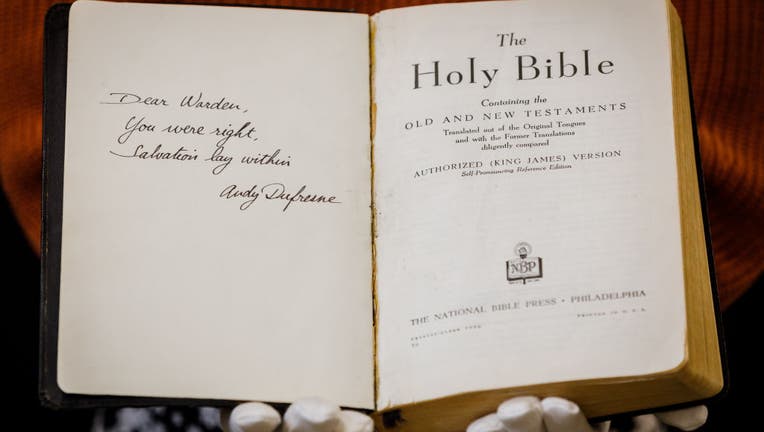 Dear Warden,
You were right,
Salvation lay within
Andy Dufresne
The
Holy Bible
Containing the
OLD AND NEW TESTAMENTS
Translated out of the Original Tongues
and with the Former Translations
diligently compared
AUTHORIZED (KING JAMES) VERSION
Self-Pronouncing Reference Edition
NBP
THE NATIONAL BIBLE PRESS · PHILADELPHIA
PRINTED IN U. S. A.